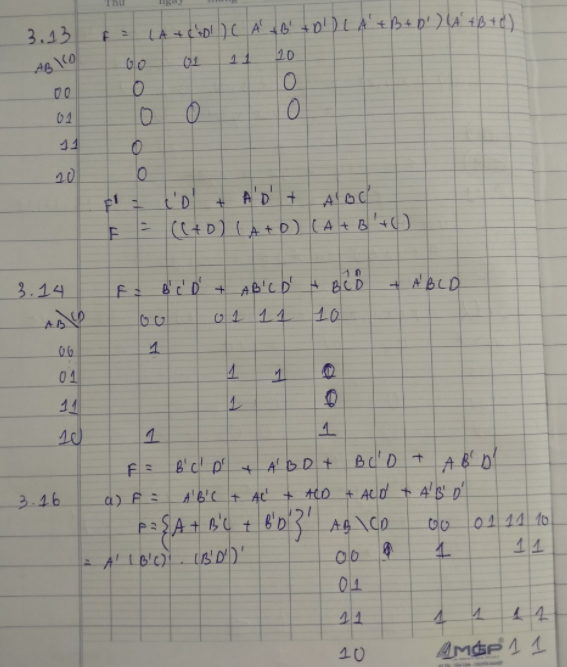 Thứ ngày tháng
3.13 F = (A + C' + D') ( A' + B' + D' ) ( A' + B + D' ) ( A' + B + C )
AB\CD 00 01 11 10
00 0 0
01 0 0 0
11 0
10 0
F' = C'D' + A'D' + A'BC'
F = (C+D) (A+D) (A+B'+C)
3.14 F = B'C'D' + AB'CD' + BC'D + A'BCD
AB\CD 00 01 11 10
00 1
01 1 1
11 1
10 1 1
F = B'C'D' + A'BD + BC'D + AB'D'
3.16 a) F = A'B'C + AC' + ACD + ACD' + A'B'D'
F = {A + B'C + B'D'}' AB\CD 00 01 11 10
= A' (B'C)' . (B'D')' 00 1 1 1
01
11 1 1 1 1
10 1 1